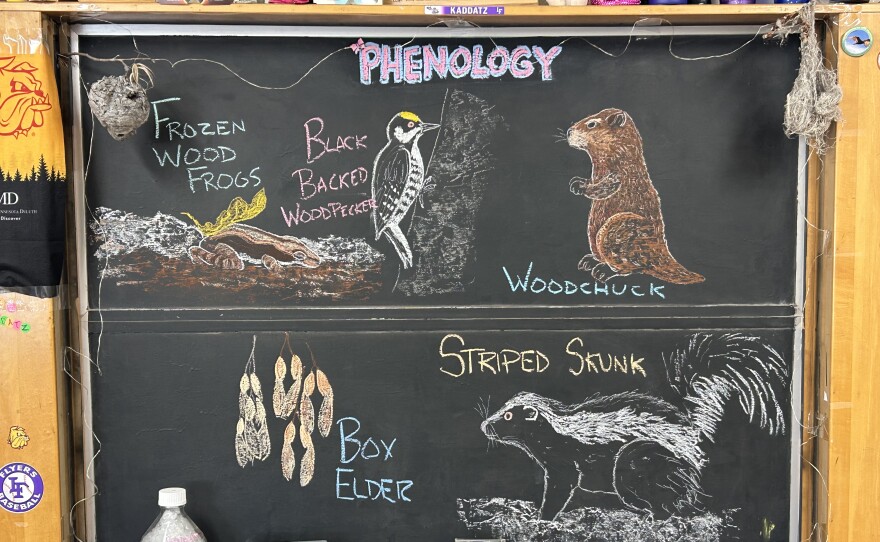 KADDATZ LF
PHENOLOGY
FROZEN
WOOD
FROGS
BLACK
BACKED
WOODPECKER
WOODCHUCK
STRIPED SKUNK
BOX
ELDER
MD
Discover
FLYERS
LF
BASEBALL